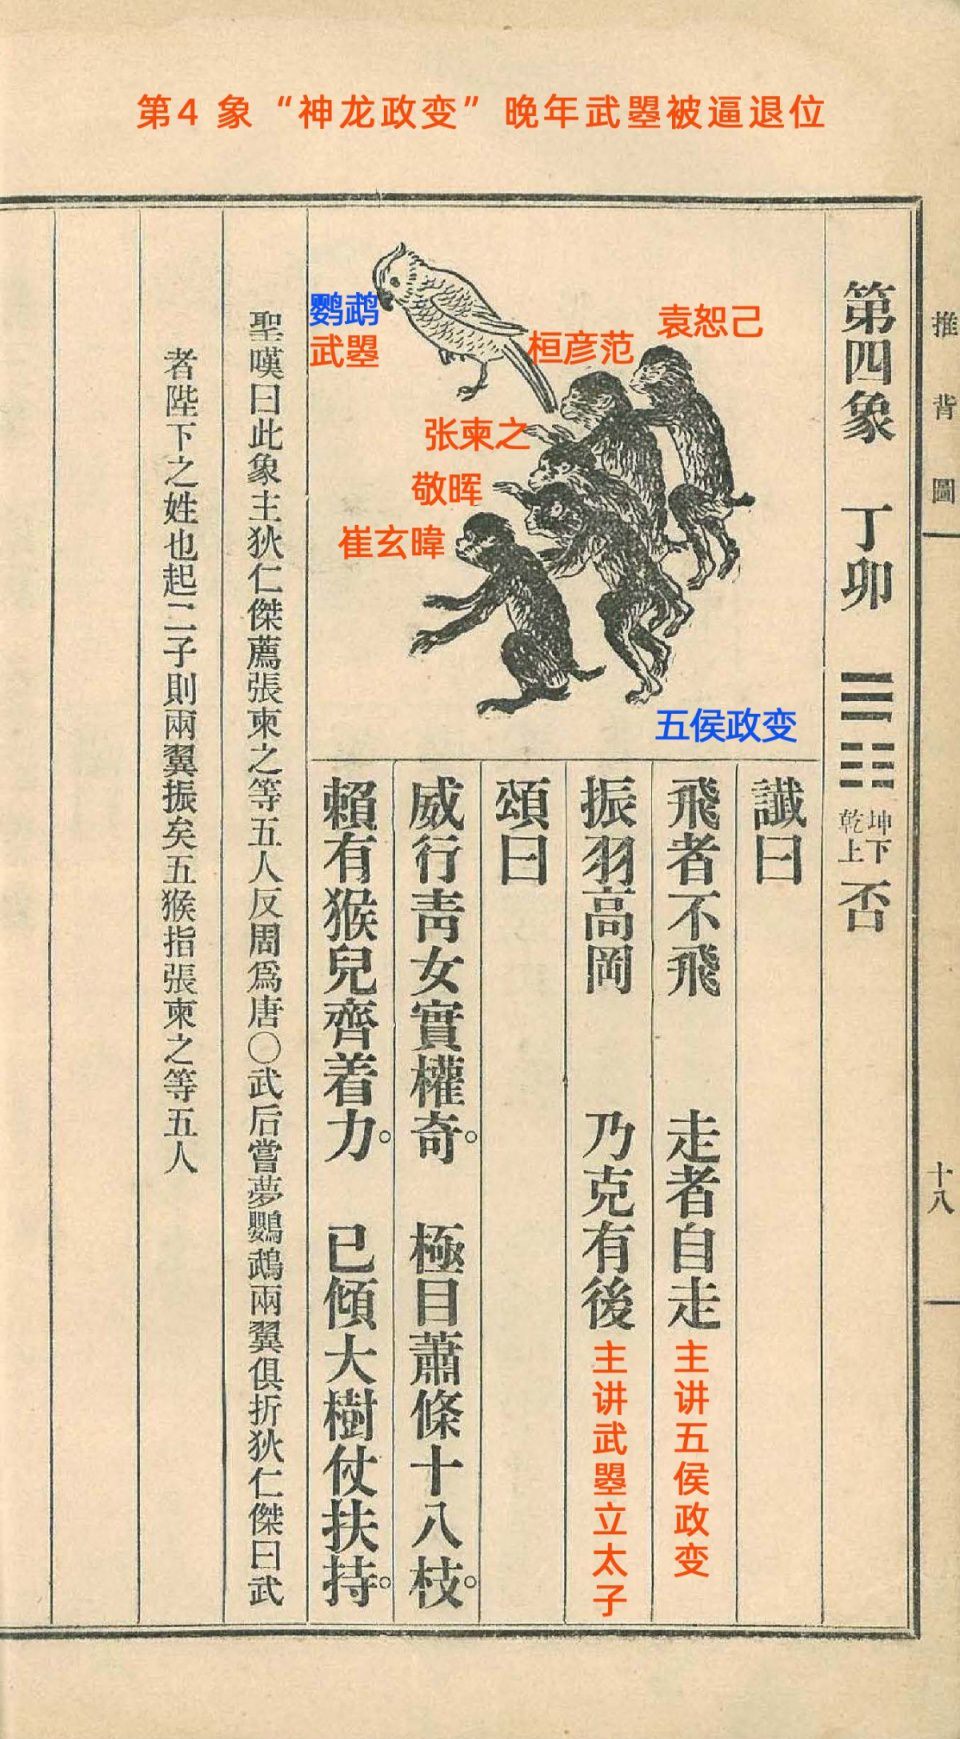 第4 象 “神龙政变” 晚年武曌被逼退位
推背圖
十八
第四象 丁卯 ䷋ 坤下乾上 否
鹦鹉
武曌
袁恕己
桓彦范
张柬之
敬晖
崔玄暐
五侯政变
讖曰
飛者不飛 走者自走
主讲五侯政变
振羽高岡 乃克有後
主讲武曌立太子
頌曰
威行青女實權奇。 極目蕭條十八枝。
賴有猴兒齊着力。 已傾大樹仗扶持。
聖嘆曰此象主狄仁傑薦張柬之等五人反周爲唐〇武后嘗夢鸚鵡兩翼俱折狄仁傑曰武
者陛下之姓也起二子則兩翼振矣五猴指張柬之等五人